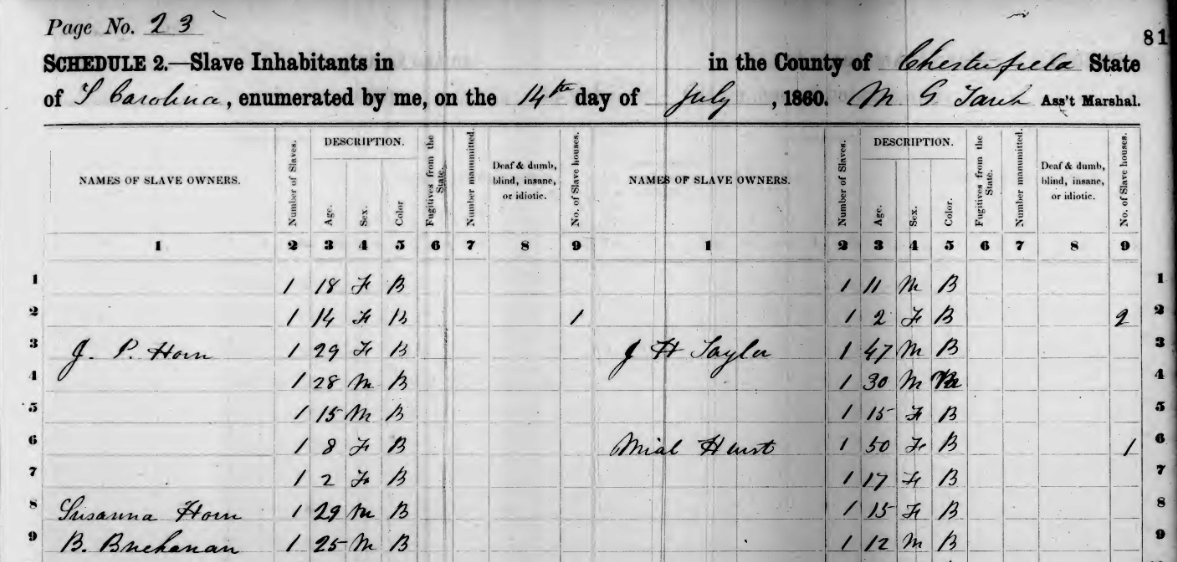 Page No. 23
81
SCHEDULE 2.—Slave Inhabitants in in the County of Chesterfield State
of S Carolina, enumerated by me, on the 14th day of July, 1860. M G Ass't Marshal.
NAMES OF SLAVE OWNERS. Number of Slaves. DESCRIPTION. Age. Sex. Color Fugitives from the State. Number manumitted. Deaf & dumb, blind, insane, or idiotic. No. of Slave houses. NAMES OF SLAVE OWNERS. Number of Slaves. DESCRIPTION. Age. Sex. Color. Fugitives from the State. Number manumitted. Deaf & dumb, blind, insane, or idiotic. No. of Slave houses.
1 2 3 4 5 6 7 8 9 1 2 3 4 5 6 7 8 9
1 1 18 F B 1 11 M B 1
2 1 14 F B 1 1 2 F B 2 2
3 J. P. Horn 1 29 F B J H Taylor 1 47 M B 3
4 1 28 M B 1 30 M 4
5 1 15 M B 1 15 F B 5
6 1 8 F B Mial Hurst 1 50 F B 1 6
7 1 2 F B 1 17 F B 7
8 Susanna Horn 1 29 M B 1 15 F B 8
9 B. Buchanan 1 25 M B 1 12 M B 9